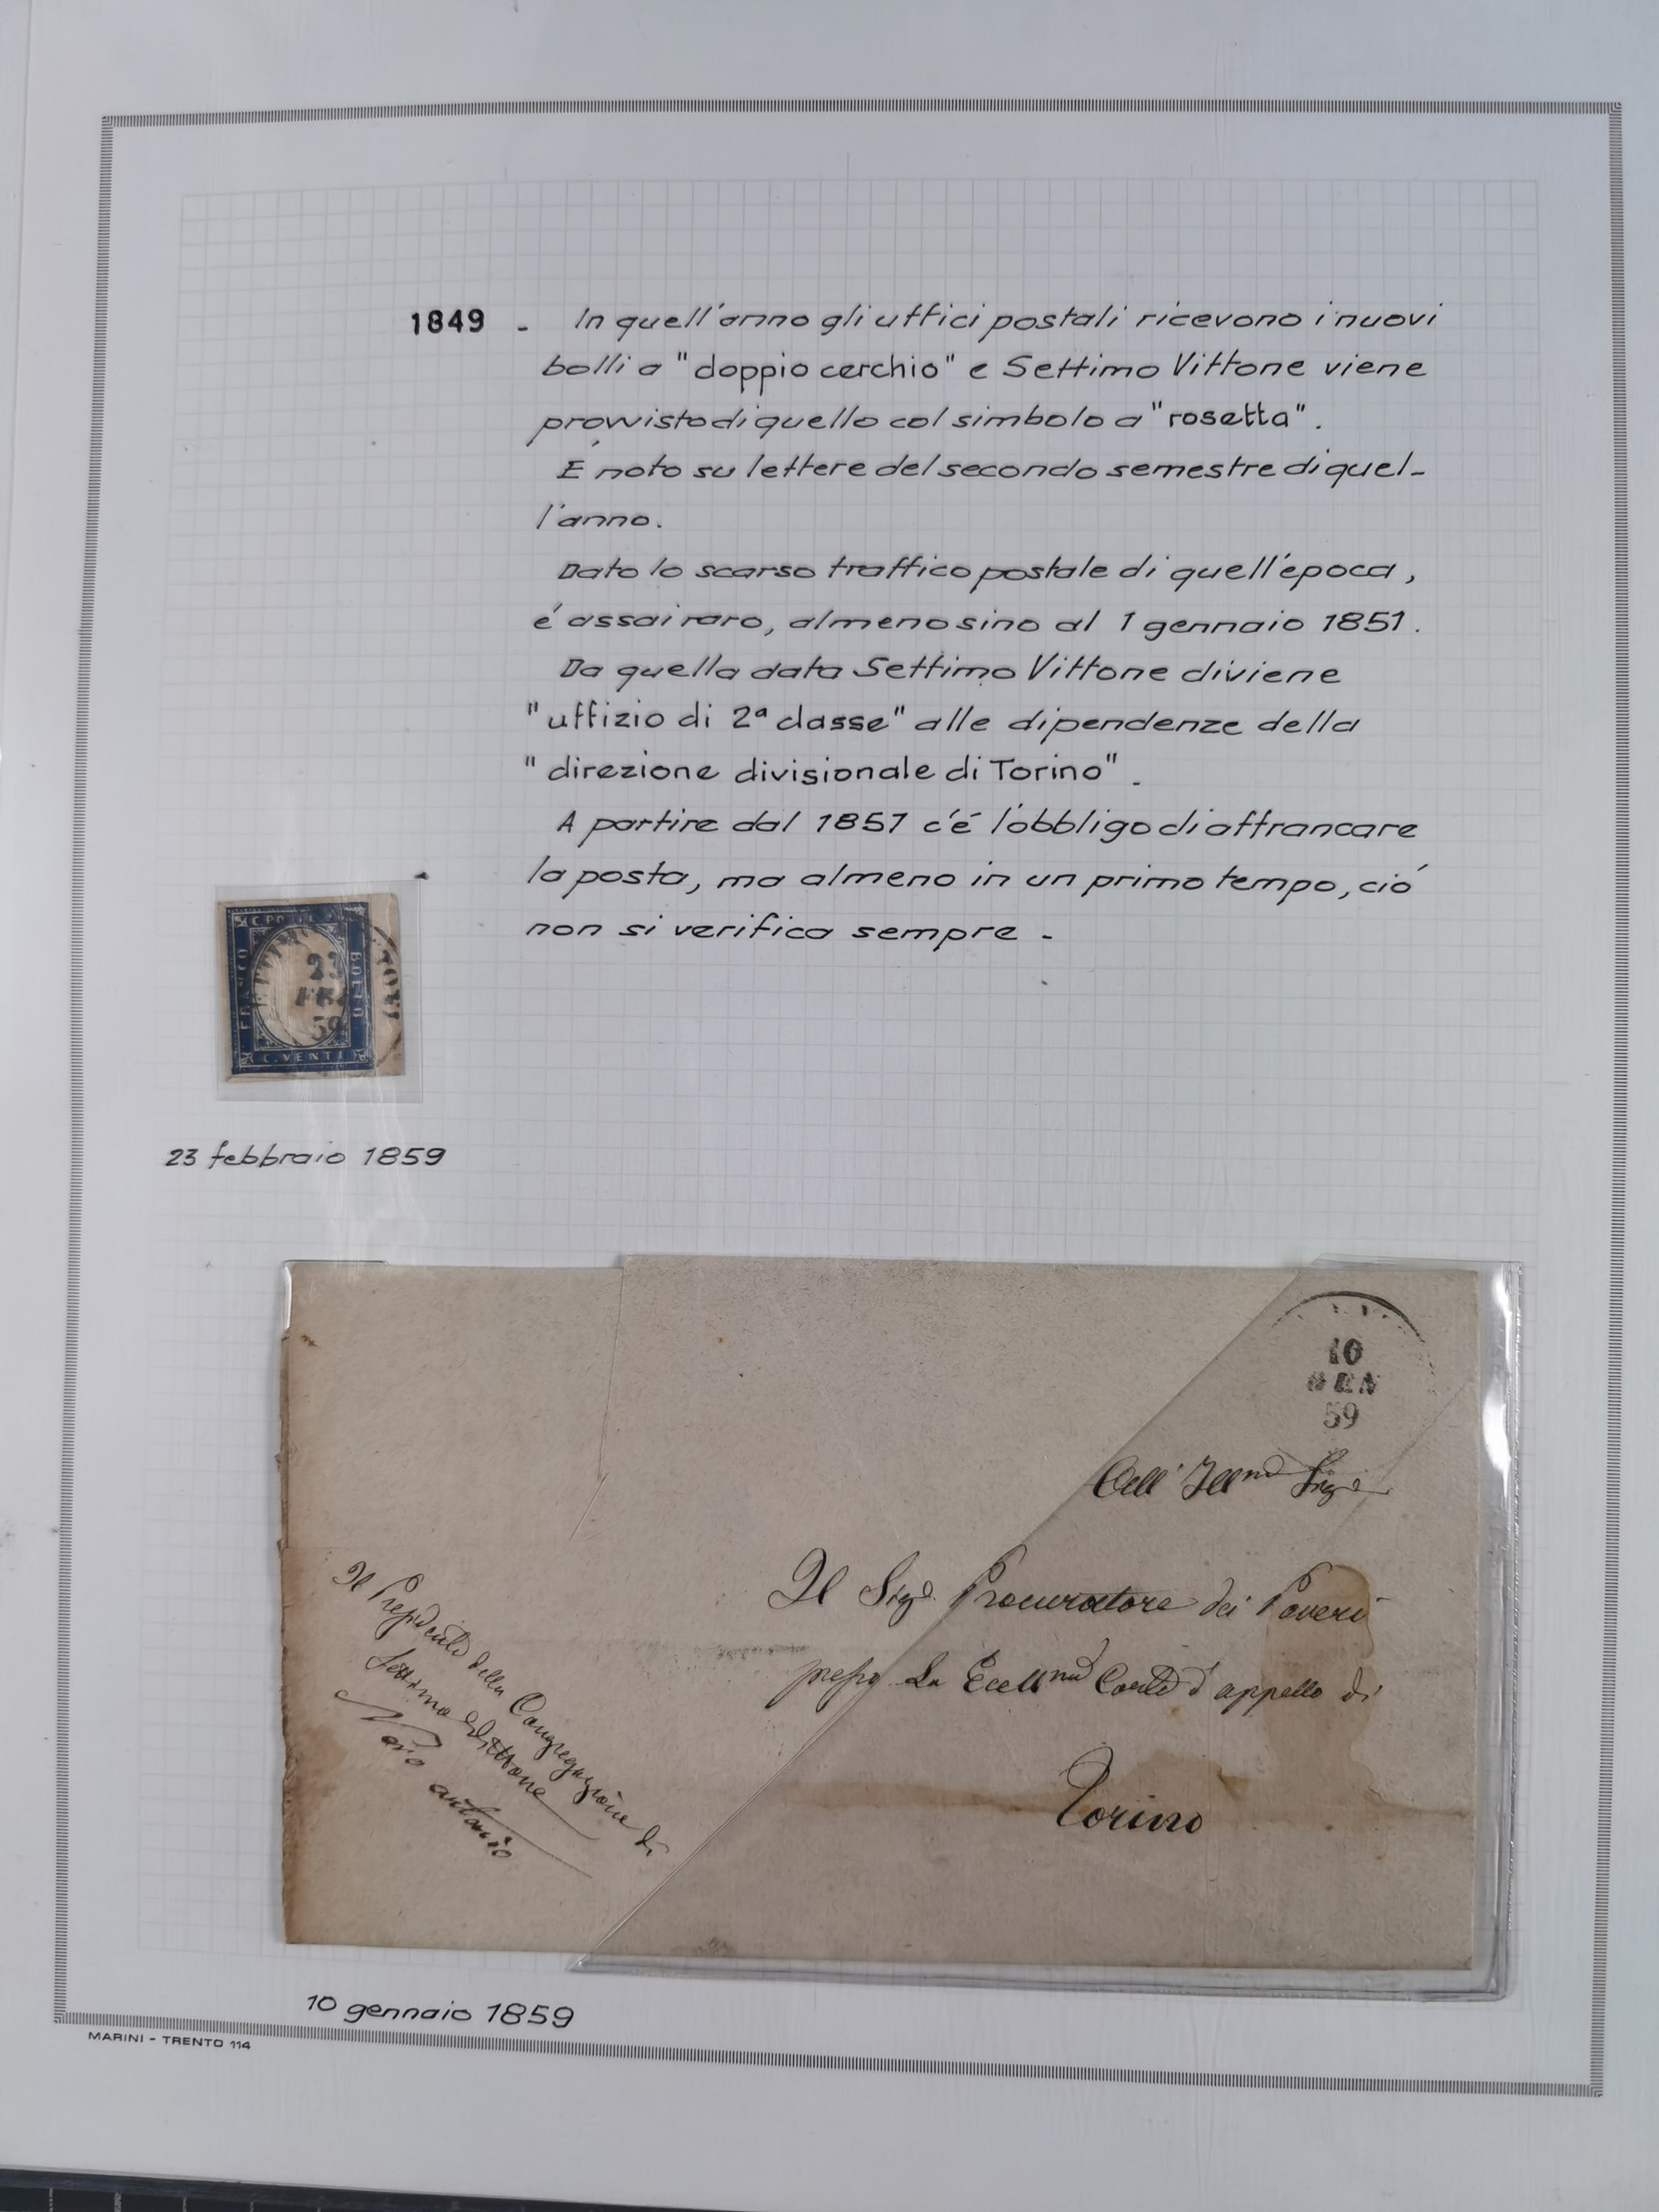 1849 - In quell'anno gli uffici postali ricevono i nuovi
bolli a "doppio cerchio" e Settimo Vittone viene
provvisto di quello col simbolo a "rosetta".
É noto su lettere del secondo semestre di quel-
l'anno.
Dato lo scarso traffico postale di quell'epoca,
é assai raro, almeno sino al 1 gennaio 1851.
Da quella data Settimo Vittone diviene
"uffizio di 2ª classe" alle dipendenze della
"direzione divisionale di Torino".
A partire dal 1851 c'é l'obbligo di affrancare
la posta, ma almeno in un primo tempo, ció
non si verifica sempre -
FRANCO
BOLLO
C. VENTI
23
FEB
59
23 febbraio 1859
10
GEN
59
All' Ill.mo Sig.e
Il Sig.e Procuratore dei Poveri
presso La Eccell.ma Corte d'appello di
Torino
Il Presidente della Congregazione di
Settimo Vittone
antonio
10 gennaio 1859
MARINI - TRENTO 114